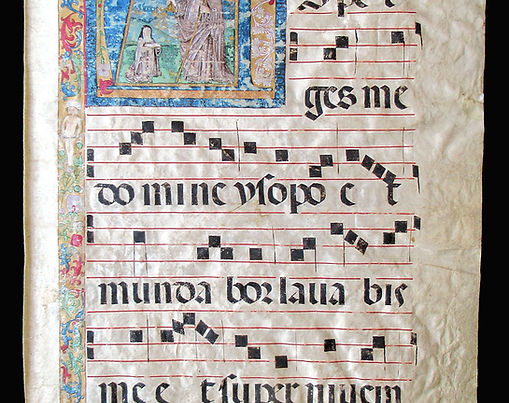 Sper
ges me
do mi ne ysopo e t
munda bor laua bis
me e t super niuem